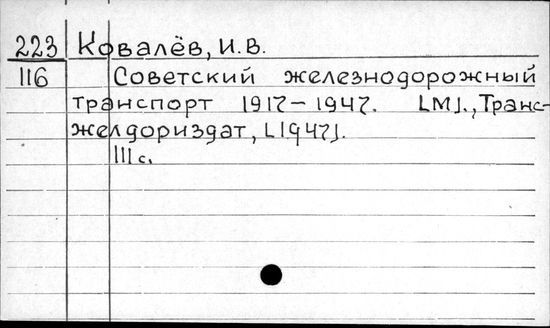 223 Ковалёв, И.В.
116 Советский железнодорожный
транспорт 1917-1947. [М]., Транс-
желдориздат, [1947].
111 с.